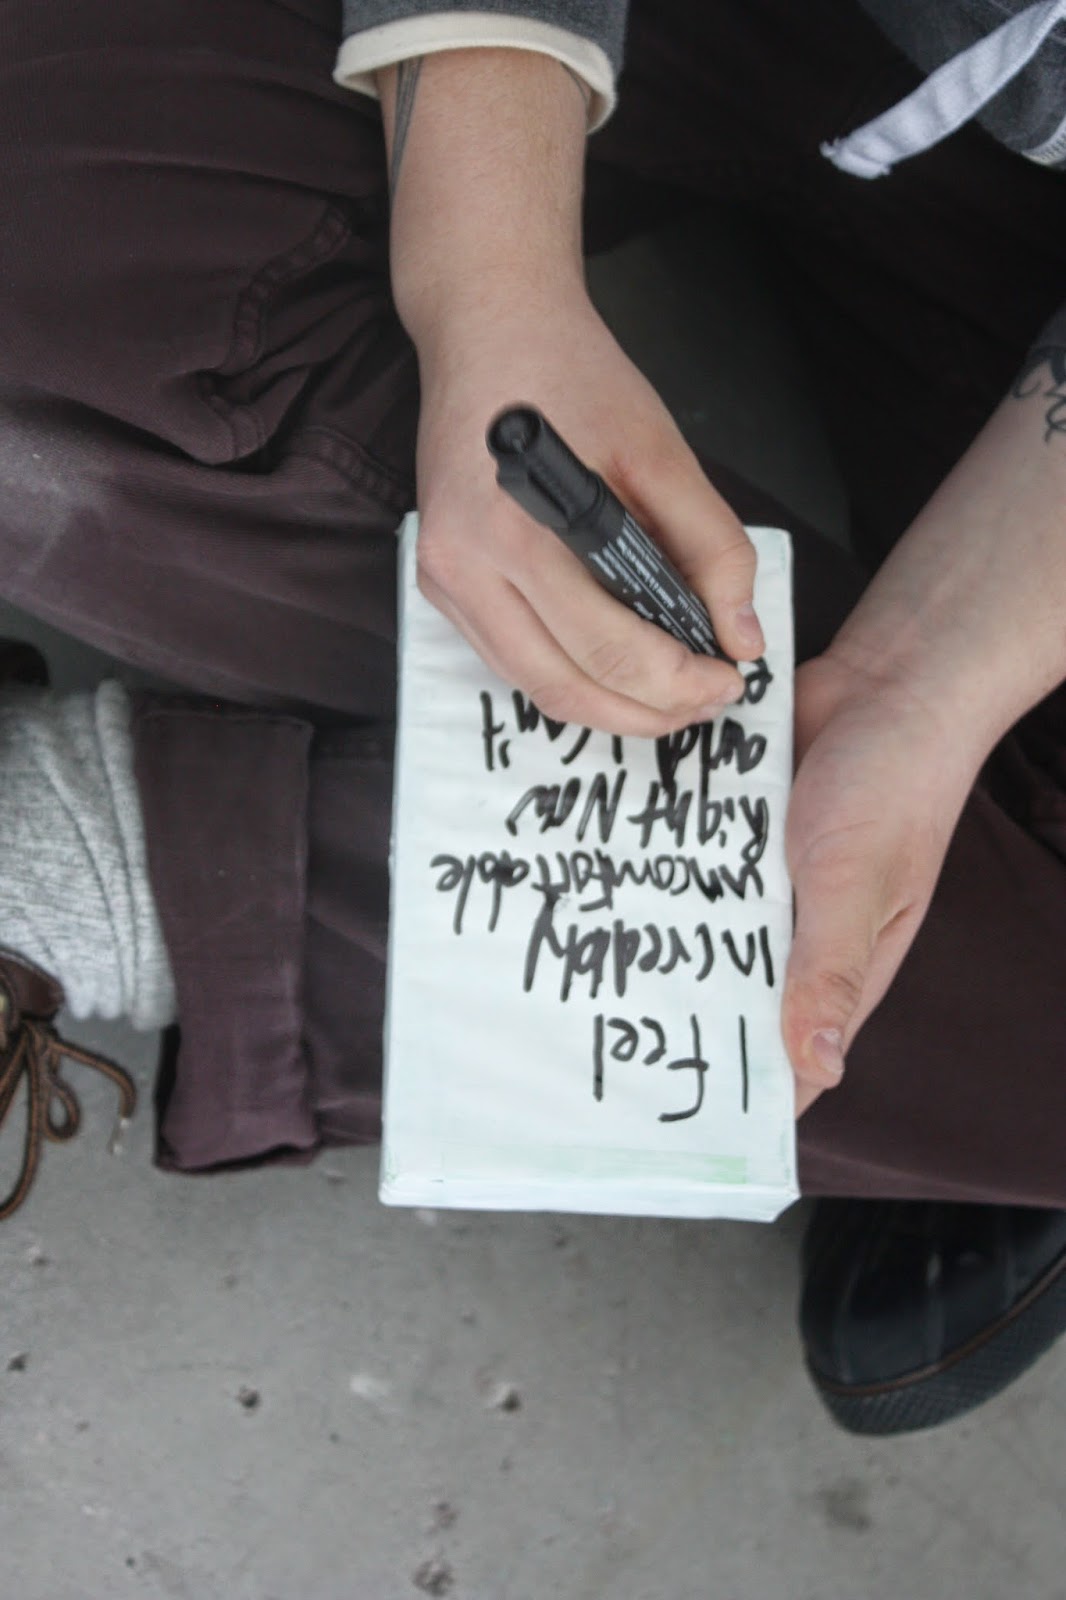 I feel
Incredibly
uncomfortable
Right Now
and I can't
e